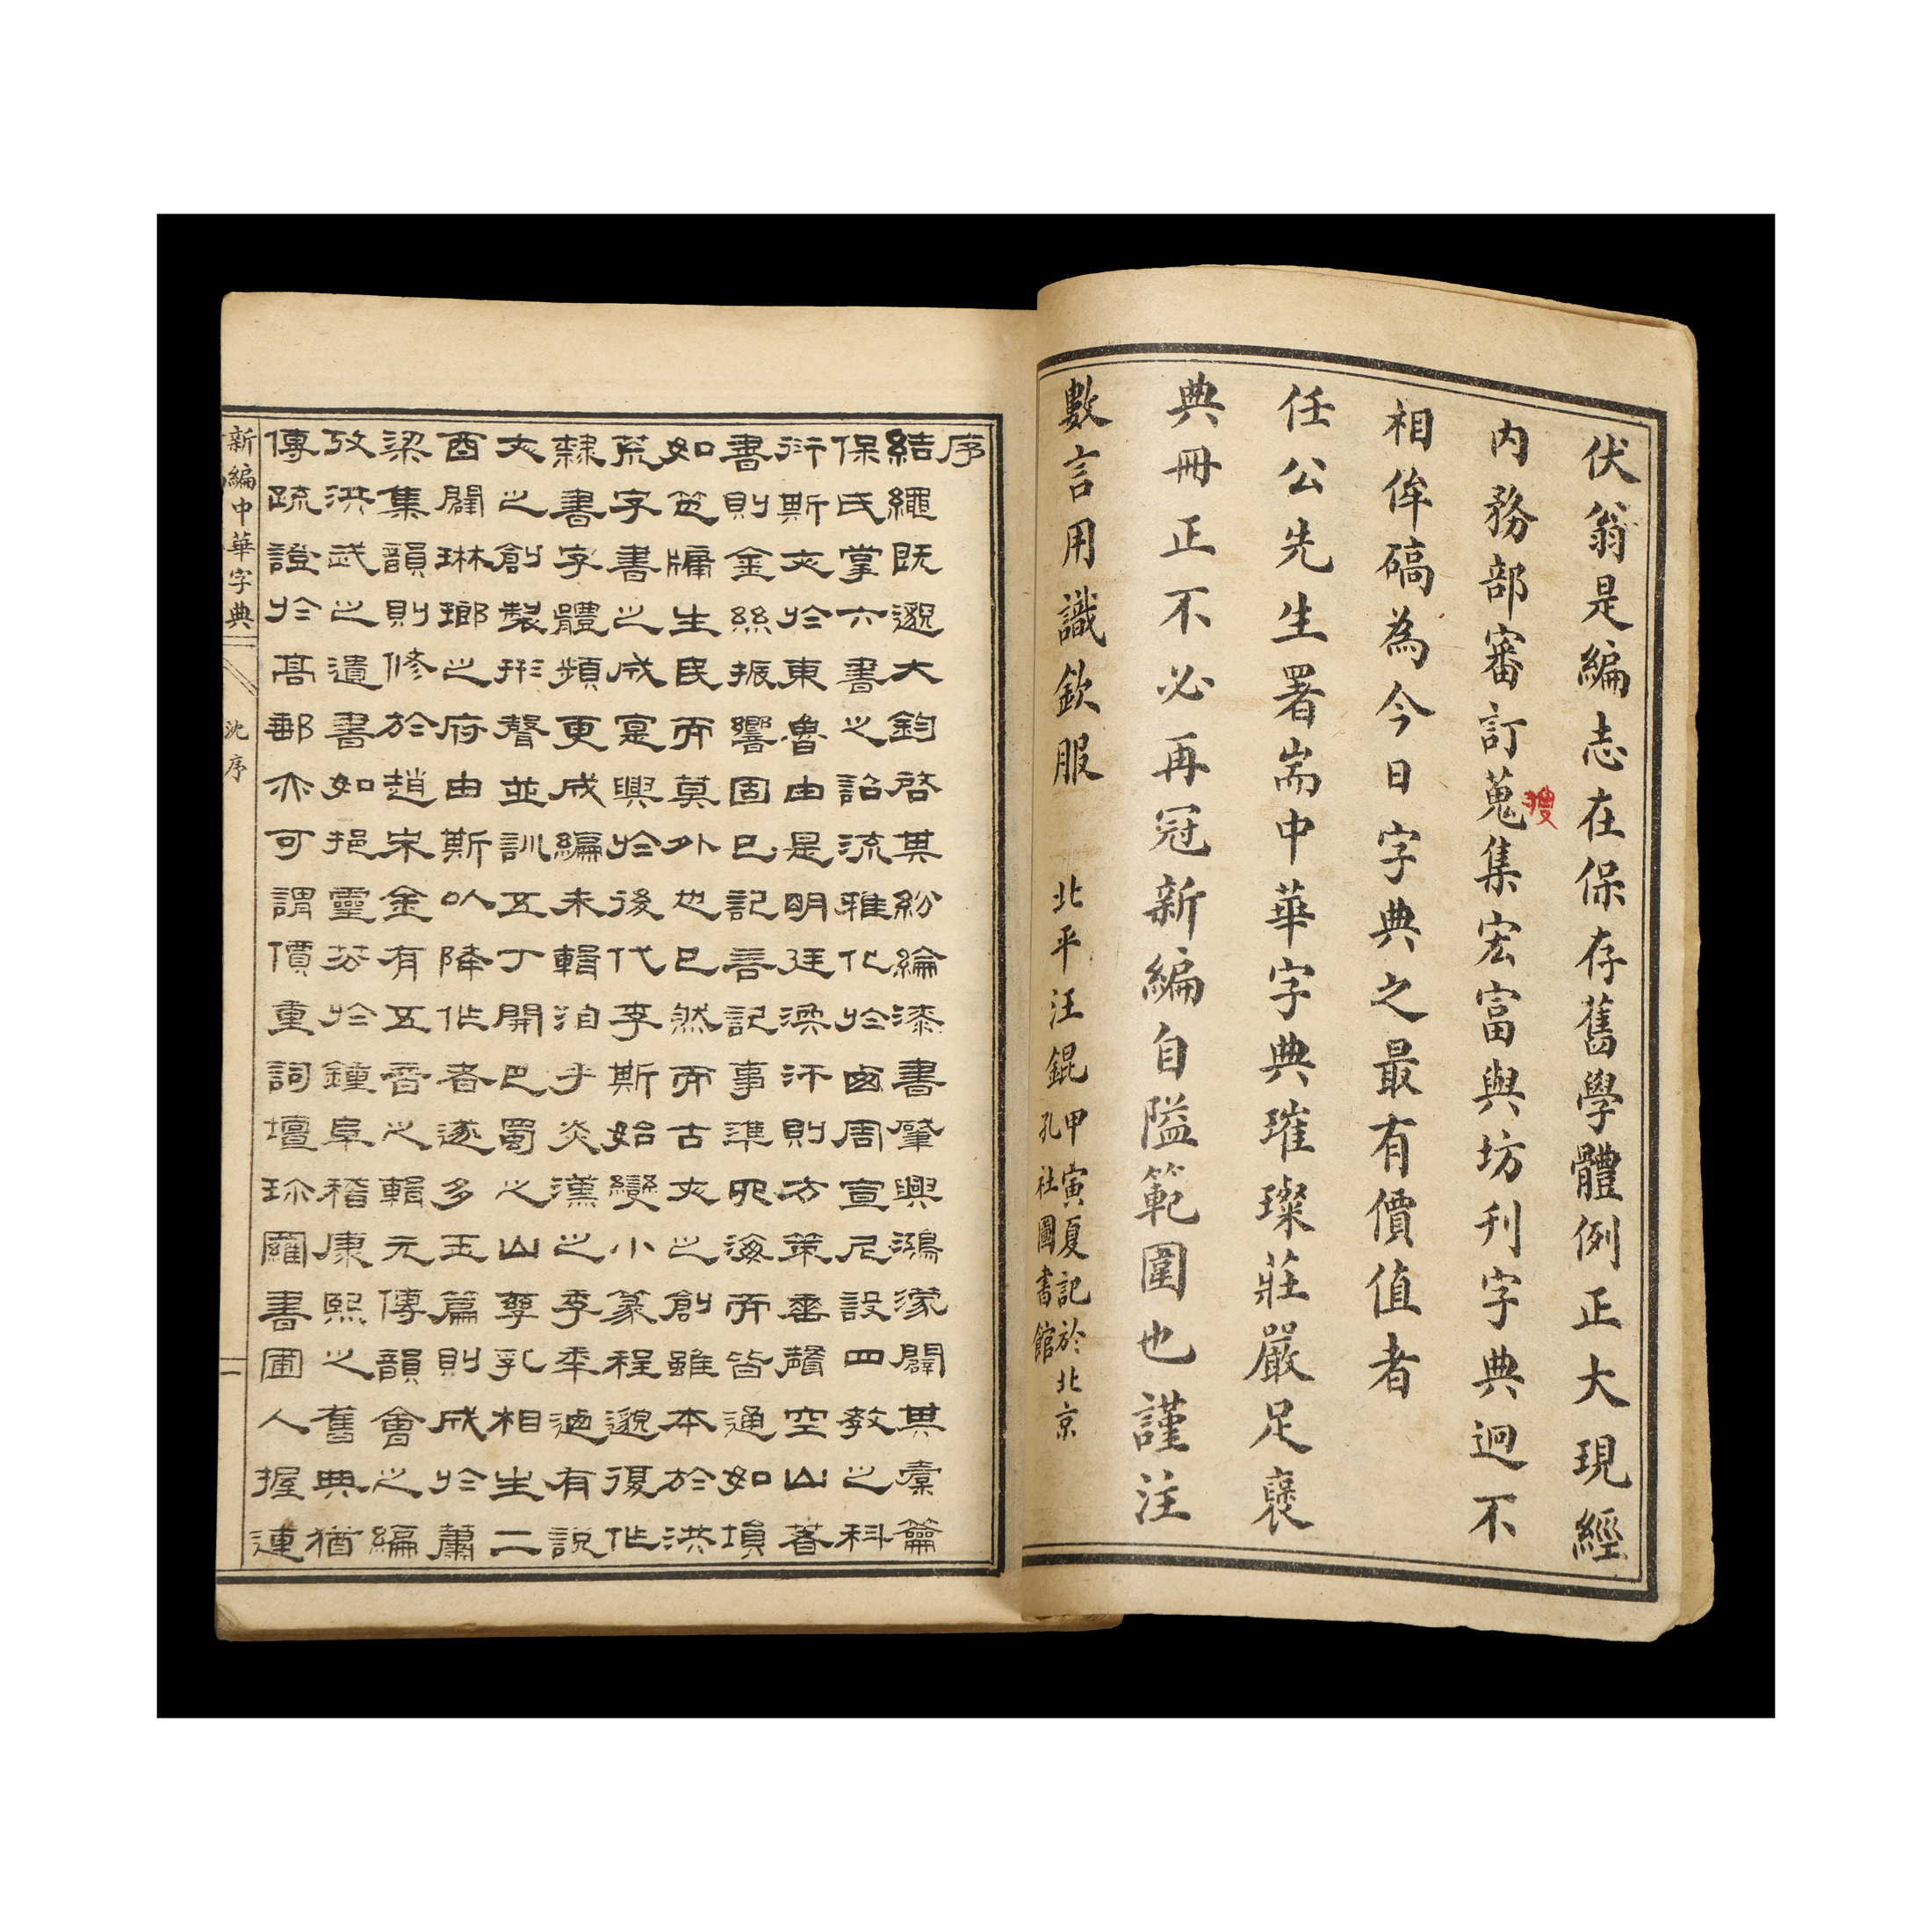 伏翁是編志在保存舊學體例正大現經
内務部審訂蒐集宏富與坊刊字典迥不
搜
相侔碻為今日字典之最有價值者
任公先生署耑中華字典璀璨莊嚴足褒
典冊正不必再冠新編自隘範圍也謹注
數言用識欽服
北平汪錕
甲寅夏記於北京
孔社圖書館
序
結繩既邈大鈞啓其紛綸漆書肇興鴻濛闢其橐籥
保氏掌六書之詔流雅化於鹵周宣尼設四教之科
衍斯文於東魯由是明廷渙汗則方策垂聲空山蓍
書則金絲振響固已記言記事準四海而皆通如塤
如箎牖生民而莫外也已然而古文之創雖本於洪
荒字書之成寔興於後代李斯始變小篆程邈復作
隸書字體頻更成編未輯洎乎炎漢之季率迺有説
文之創製形聲並訓五丁開巴蜀之山孳乳相生二
酉闢琳瑯之府由斯以降作者逐多玉篇則成於蕭
梁集韻則修於趙宋金有五音之輯元傳韻會之編
攷洪武之遺書如挹靈芬於鍾阜稽康熙之舊典猶
傳疏證於高郵亦可謂價重詞壇珍羅書圃人握連
新編中華字典
沈序
一